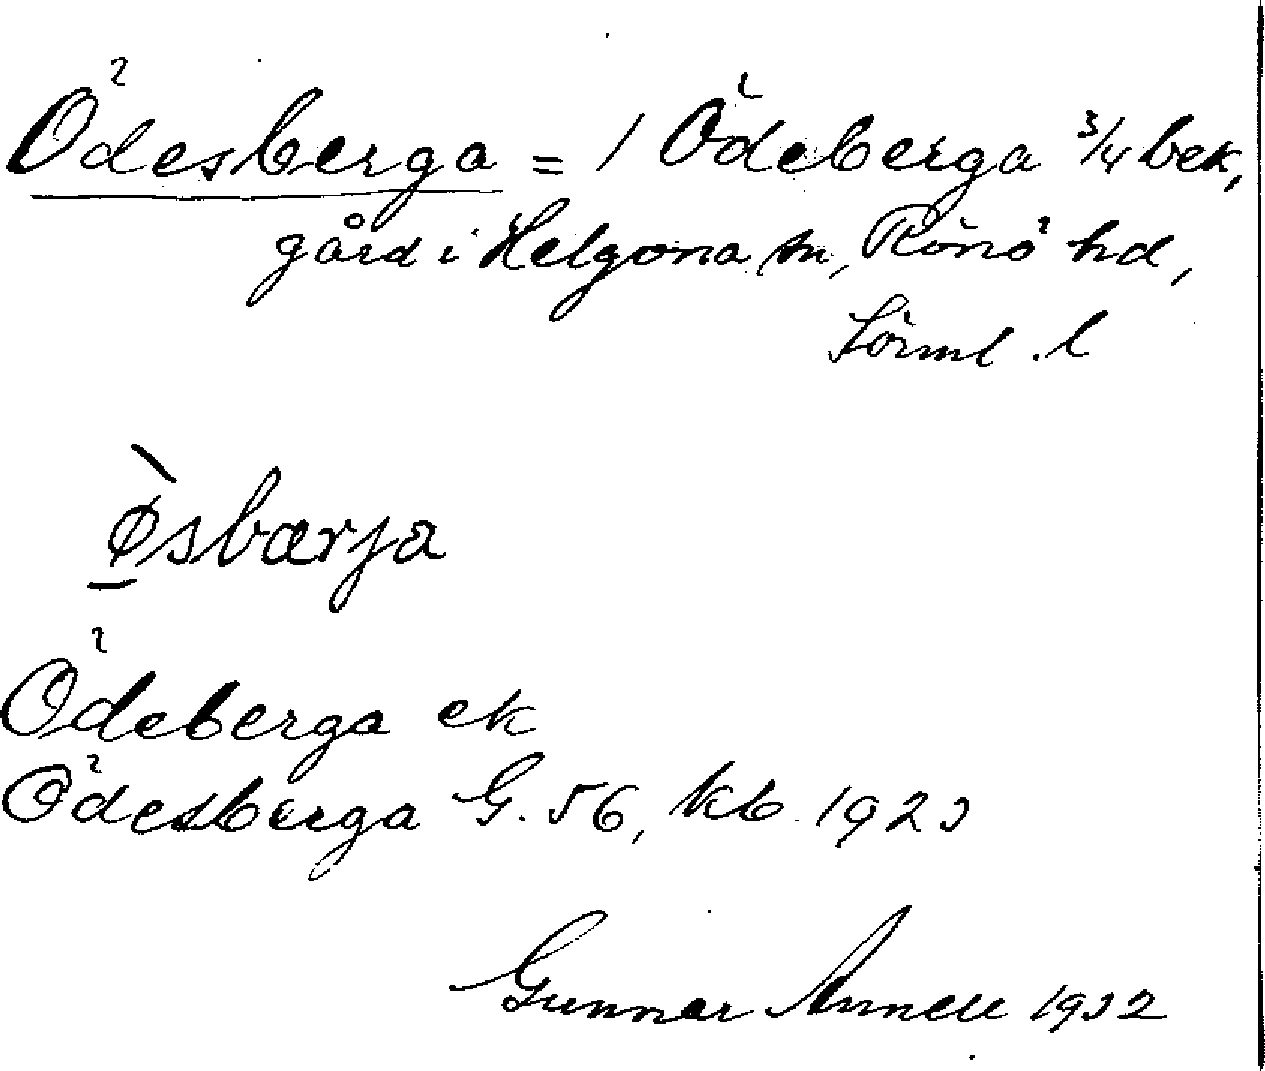 Ödesberga = 1 Ödeberga 3/4 bek,
gård i Helgona sn, Rönö hd,
Sörml. l
Øsbærja
Ödeberga ek
Ödesberga G. 56, kb 1923
Gunnar Annell 1932